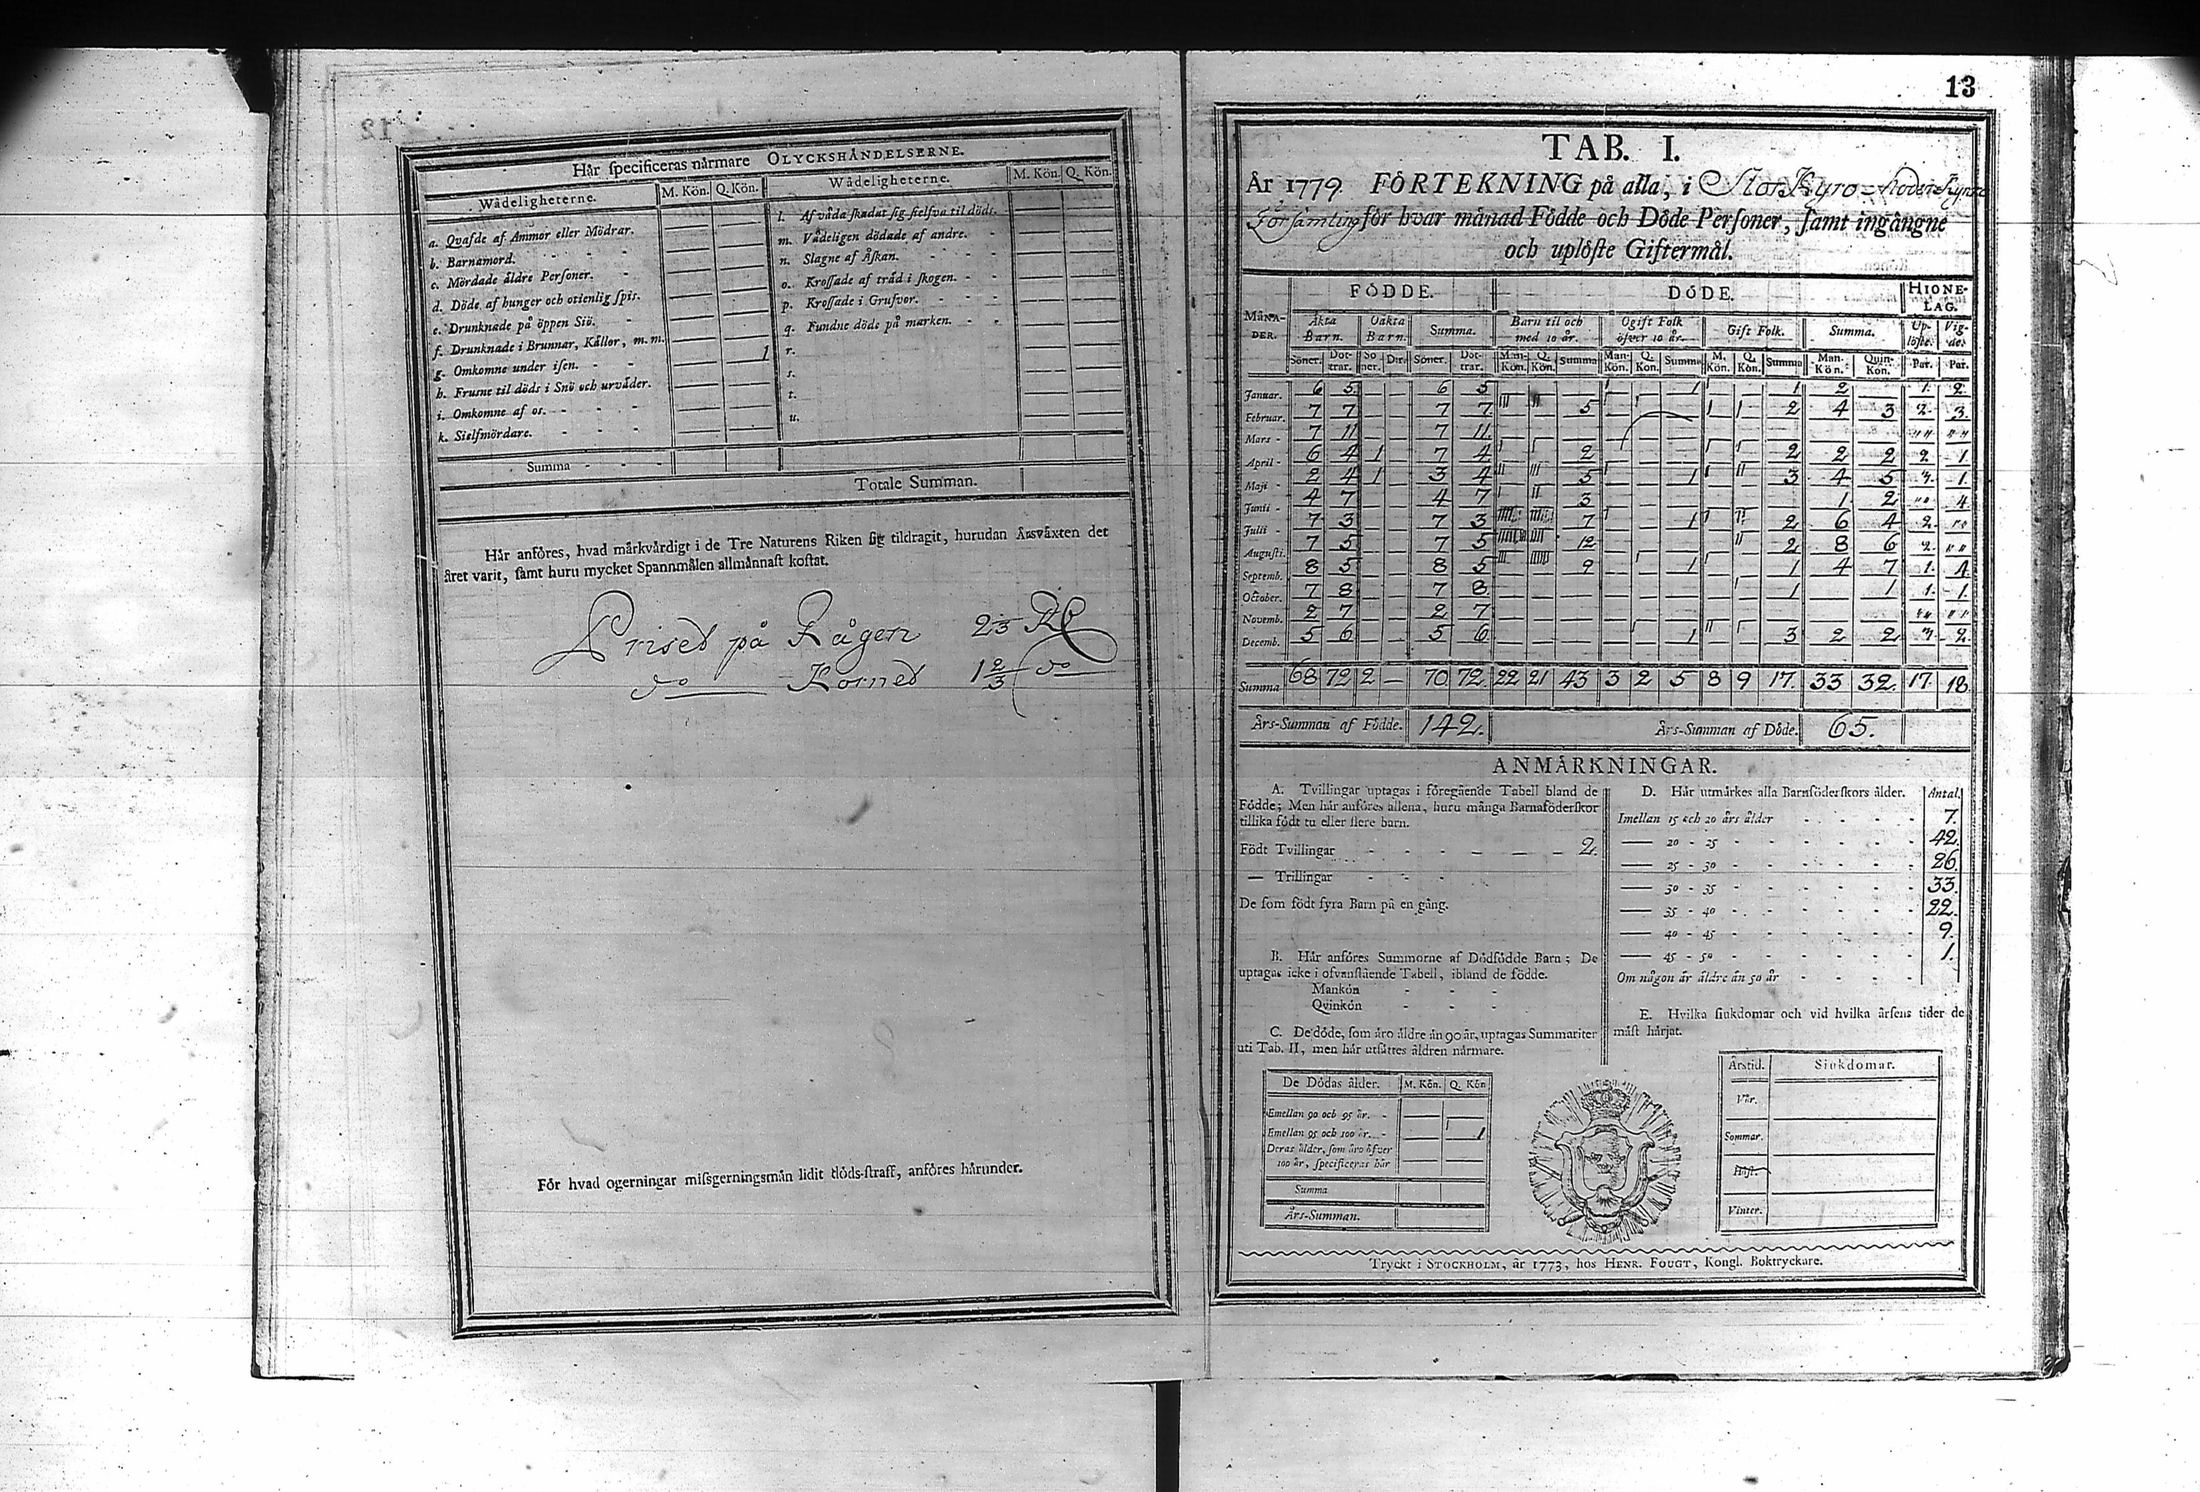 Hår specificeras nårmare OLYCKSHÅNDELSERNE.
Wådeligheterne. M. Kön. Q. Kön. Wådeligheterne. M. Kön. Q. Kön.
a. Qvafde af Ammor eller Mödrar.
b. Barnamord.
c. Mördade åldre Personer.
d. Döde af hunger och otienlig spis.
e. Drunknade på öppen Siö.
f. Drunknade i Brunnar, Kållor, m. m.
g. Omkomne under isen. 1
h. Frusne til döds i Snö och urväder.
i. Omkomne af os.
k. Sielfmördare.
l. Af våda skadat sig sielfva til döds.
m. Vådeligen dödade af andre.
n. Slagne af Åskan.
o. Krossade af tråd i skogen.
p. Krossade i Grufvor.
q. Fundne döde på marken.
r.
s.
t.
u.
Summa
Totale Summan.
Hår anföres, hvad mårkvårdigt i de Tre Naturens Riken sig tildragit, hurudan Årsvåxten det
året varit, samt huru mycket Spannmålen allmånnast kostat.
Priset på Rågen 2 1/3 Rd
do Kornet 1 2/3 do
För hvad ogerningar missgerningsmån lidit döds-straff, anföres hårunder.
13
TAB. I.
År 1779. FÖRTEKNING på alla, i Stor Kyro Moder Kyrko
Församling för hvar månad Födde och Döde Personer, samt ingångne
och uplöste Giftermål.
MÅNADER. FÖDDE. DÖDE. HIONELAG.
Åkta Barn. Oåkta Barn. Summa. Barn til och med 10 år. Ogift Folk öfver 10 år. Gift Folk. Summa. Uplöste. Vigde.
Söner. Dottrar. Söner. Dtr. Söner. Dottrar. Mankön. Q. Kön. Summa Mankön. Q. Kön. Summa M. Kön. Q. Kön. Summa Mankön. Quinkön. Par. Par.
Januar. 6 5 — — 6 5 1 1 2 1. 2.
Februar. 7 7 — — 7 7 5 2 4 3 2. 3.
Mars 7 11 — — 7 11
April 6 4 1 — 7 4 2 2 2 2 2. 1
Maji 2 4 1 — 3 4 5 1 3 4 5 1
Junii 4 7 — — 4 7 3 1 2 4
Julii 7 3 — — 7 3 7 1 2 6 4 2.
Augusti. 7 5 — — 7 5 12 2 8 6 2.
Septemb. 8 5 — — 8 5 9 1 1 4 7 1. 4
October. 7 8 — — 7 8 1 1 1. 1.
Novemb. 2 7 — — 2 7
Decemb. 5 6 — — 5 6 1 3 2 2 2.
Summa 68 72 2 — 70 72 22 21 43 3 2 5 8 9 17. 33 32. 17 18
Års-Summan af Födde. 142. Års-Summan af Döde. 65.
ANMÅRKNINGAR.
A. Tvillingar uptagas i föregående Tabell bland de
Födde; Men hår anföres allena, huru många Barnaföderskor
tillika födt tu eller flere barn.
Födt Tvillingar 2.
— Trillingar
De som födt fyra Barn på en gång.
B. Hår anföres Summorne af Dödfödde Barn; De
uptagas icke i ofvanstående Tabell, ibland de födde.
Mankön
Qvinkön
C. De döde, som åro åldre ån 90 år, uptagas Summariter
uti Tab. II, men hår utsåttes åldren nårmare.
De Dödas ålder. M. Kön. Q. Kön
Emellan 90 och 95 år.
Emellan 95 och 100 år. 1
Deras ålder, som åro öfver
100 år, specificeras hår
Summa
Års-Summan.
D. Hår utmårkes alla Barnföderskors ålder. Antal.
Imellan 15 och 20 års ålder 7.
— 20 - 25 42.
— 25 - 30 26.
— 30 - 35 33.
— 35 - 40 22.
— 40 - 45 9.
— 45 - 50 1.
Om någon år åldre ån 50 år
E. Hvilka siukdomar och vid hvilka årsens tider de
måst hårjat.
Årstid. Siukdomar.
Vår.
Sommar.
Höst.
Vinter.
Tryckt i STOCKHOLM, år 1773, hos HENR. FOUGT, Kongl. Boktryckare.